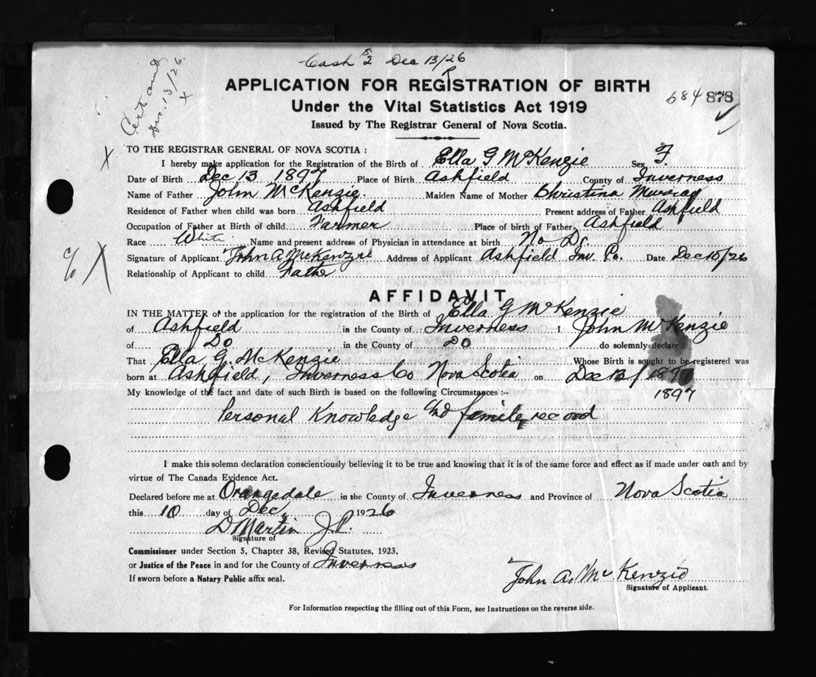 Cash $2 Dec 13/26
Cert and
Dec. 13/26
X
APPLICATION FOR REGISTRATION OF BIRTH
Under the Vital Statistics Act 1919
684 878
Issued by The Registrar General of Nova Scotia.
X
TO THE REGISTRAR GENERAL OF NOVA SCOTIA :
I hereby make application for the Registration of the Birth of Ella G McKenzie Sex F.
Date of Birth Dec 13 1897 Place of Birth Ashfield County of Inverness
Name of Father John McKenzie Maiden Name of Mother Christina Murray
Residence of Father when child was born Ashfield Present address of Father Ashfield
Occupation of Father at Birth of child Farmer Place of birth of Father Ashfield
Race White Name and present address of Physician in attendance at birth No Dr
Signature of Applicant John A McKenzie Address of Applicant Ashfield Inv. Co. Date Dec 10/26
X
Relationship of Applicant to child Father
AFFIDAVIT
IN THE MATTER of the application for the registration of the Birth of Ella G McKenzie
of Ashfield in the County of Inverness I, John McKenzie
of Do in the County of Do do solemnly declare :
That Ella G. McKenzie Whose Birth is sought to be registered was
born at Ashfield, Inverness Co Nova Scotia on Dec 13/1897
My knowledge of the fact and date of such Birth is based on the following Circumstances :- 1897
Personal Knowledge and family record
I make this solemn declaration conscientiously believing it to be true and knowing that it is of the same force and effect as if made under oath and by
virtue of The Canada Evidence Act.
Declared before me at Orangedale in the County of Inverness and Province of Nova Scotia
this 10 day of Dec, 1926
D Martin J.P.
Signature of
Commissioner under Section 5, Chapter 38, Revised Statutes, 1923,
or Justice of the Peace in and for the County of Inverness
If sworn before a Notary Public affix seal.
John A. McKenzie
Signature of Applicant.
For Information respecting the filling out of this Form, see Instructions on the reverse side.